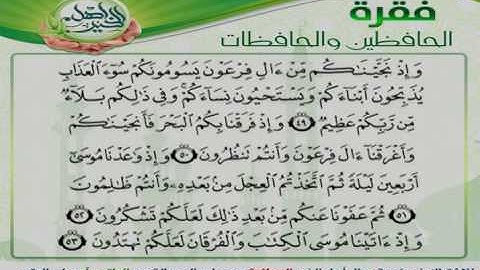 فقرة
الحافظين والحافظات
وَإِذْ نَجَّيْنَٰكُم مِّنْ ءَالِ فِرْعَوْنَ يَسُومُونَكُمْ سُوٓءَ ٱلْعَذَابِ
يُذَبِّحُونَ أَبْنَآءَكُمْ وَيَسْتَحْيُونَ نِسَآءَكُمْ ۚ وَفِى ذَٰلِكُم بَلَآءٌ
مِّن رَّبِّكُمْ عَظِيمٌ ﴿٤٩﴾ وَإِذْ فَرَقْنَا بِكُمُ ٱلْبَحْرَ فَأَنجَيْنَٰكُمْ
وَأَغْرَقْنَآ ءَالَ فِرْعَوْنَ وَأَنتُمْ تَنظُرُونَ ﴿٥٠﴾ وَإِذْ وَٰعَدْنَا مُوسَىٰٓ
أَرْبَعِينَ لَيْلَةً ثُمَّ ٱتَّخَذْتُمُ ٱلْعِجْلَ مِنۢ بَعْدِهِۦ وَأَنتُمْ ظَٰلِمُونَ
﴿٥١﴾ ثُمَّ عَفَوْنَا عَنكُم مِّنۢ بَعْدِ ذَٰلِكَ لَعَلَّكُمْ تَشْكُرُونَ ﴿٥٢﴾
وَإِذْ ءَاتَيْنَا مُوسَى ٱلْكِتَٰبَ وَٱلْفُرْقَانَ لَعَلَّكُمْ تَهْتَدُونَ ﴿٥٣﴾